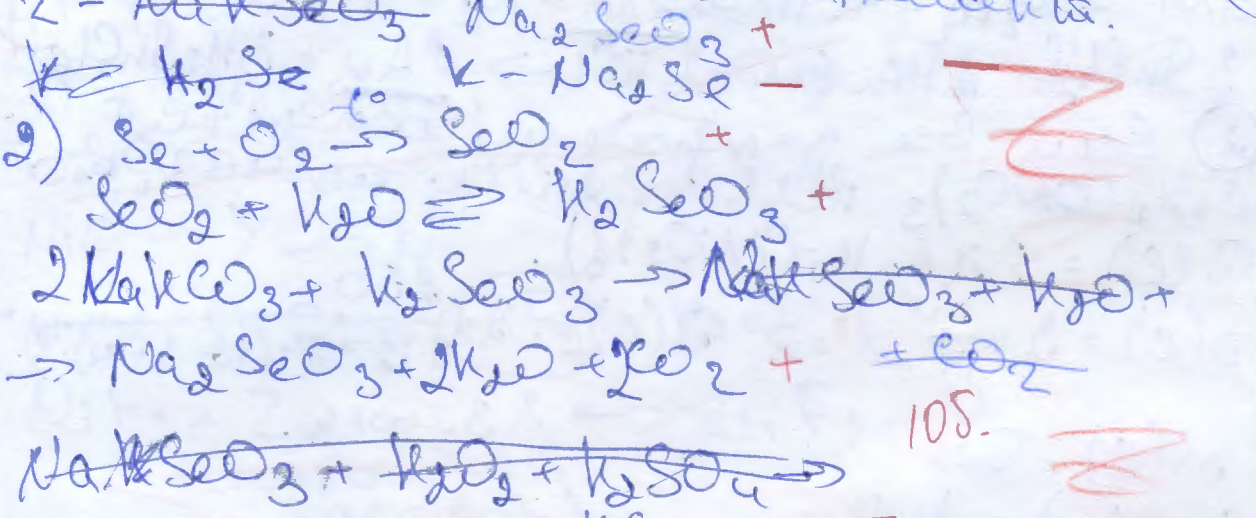 Na₂SeO₃ +
K – Na₂Se –
2) Se + O₂ →t° SeO₂ +
SeO₂ + H₂O ⇄ H₂SeO₃ +
2NaHCO₃ + H₂SeO₃ → NaHSeO₃ + H₂O +
+ CO₂
→ Na₂SeO₃ + 2H₂O + 2CO₂ +
10б.
NaHSeO₃ + H₂O₂ + H₂SO₄ →